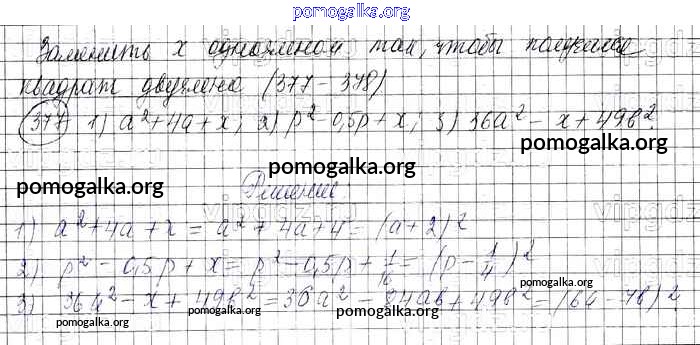 pomogalka.org
Заменить x одночленом так, чтобы получился
квадрат двучлена (377 - 378)
377 1) a²+4a+x; 2) p²-0,5p+x; 3) 36a²-x+49b².
pomogalka.org pomogalka.org
pomogalka.org
Решение
pomogalka.org
1) a²+4a+x = a²+4a+4 = (a+2)²
pomogalka.org
2) p²-0,5p+x = p²-0,5p+1/16 = (p-1/4)²
pomogalka.org
3) 36a²-x+49b² = 36a²-84ab+49b² = (6a-7b)²
pomogalka.org pomogalka.org pomogalka.org